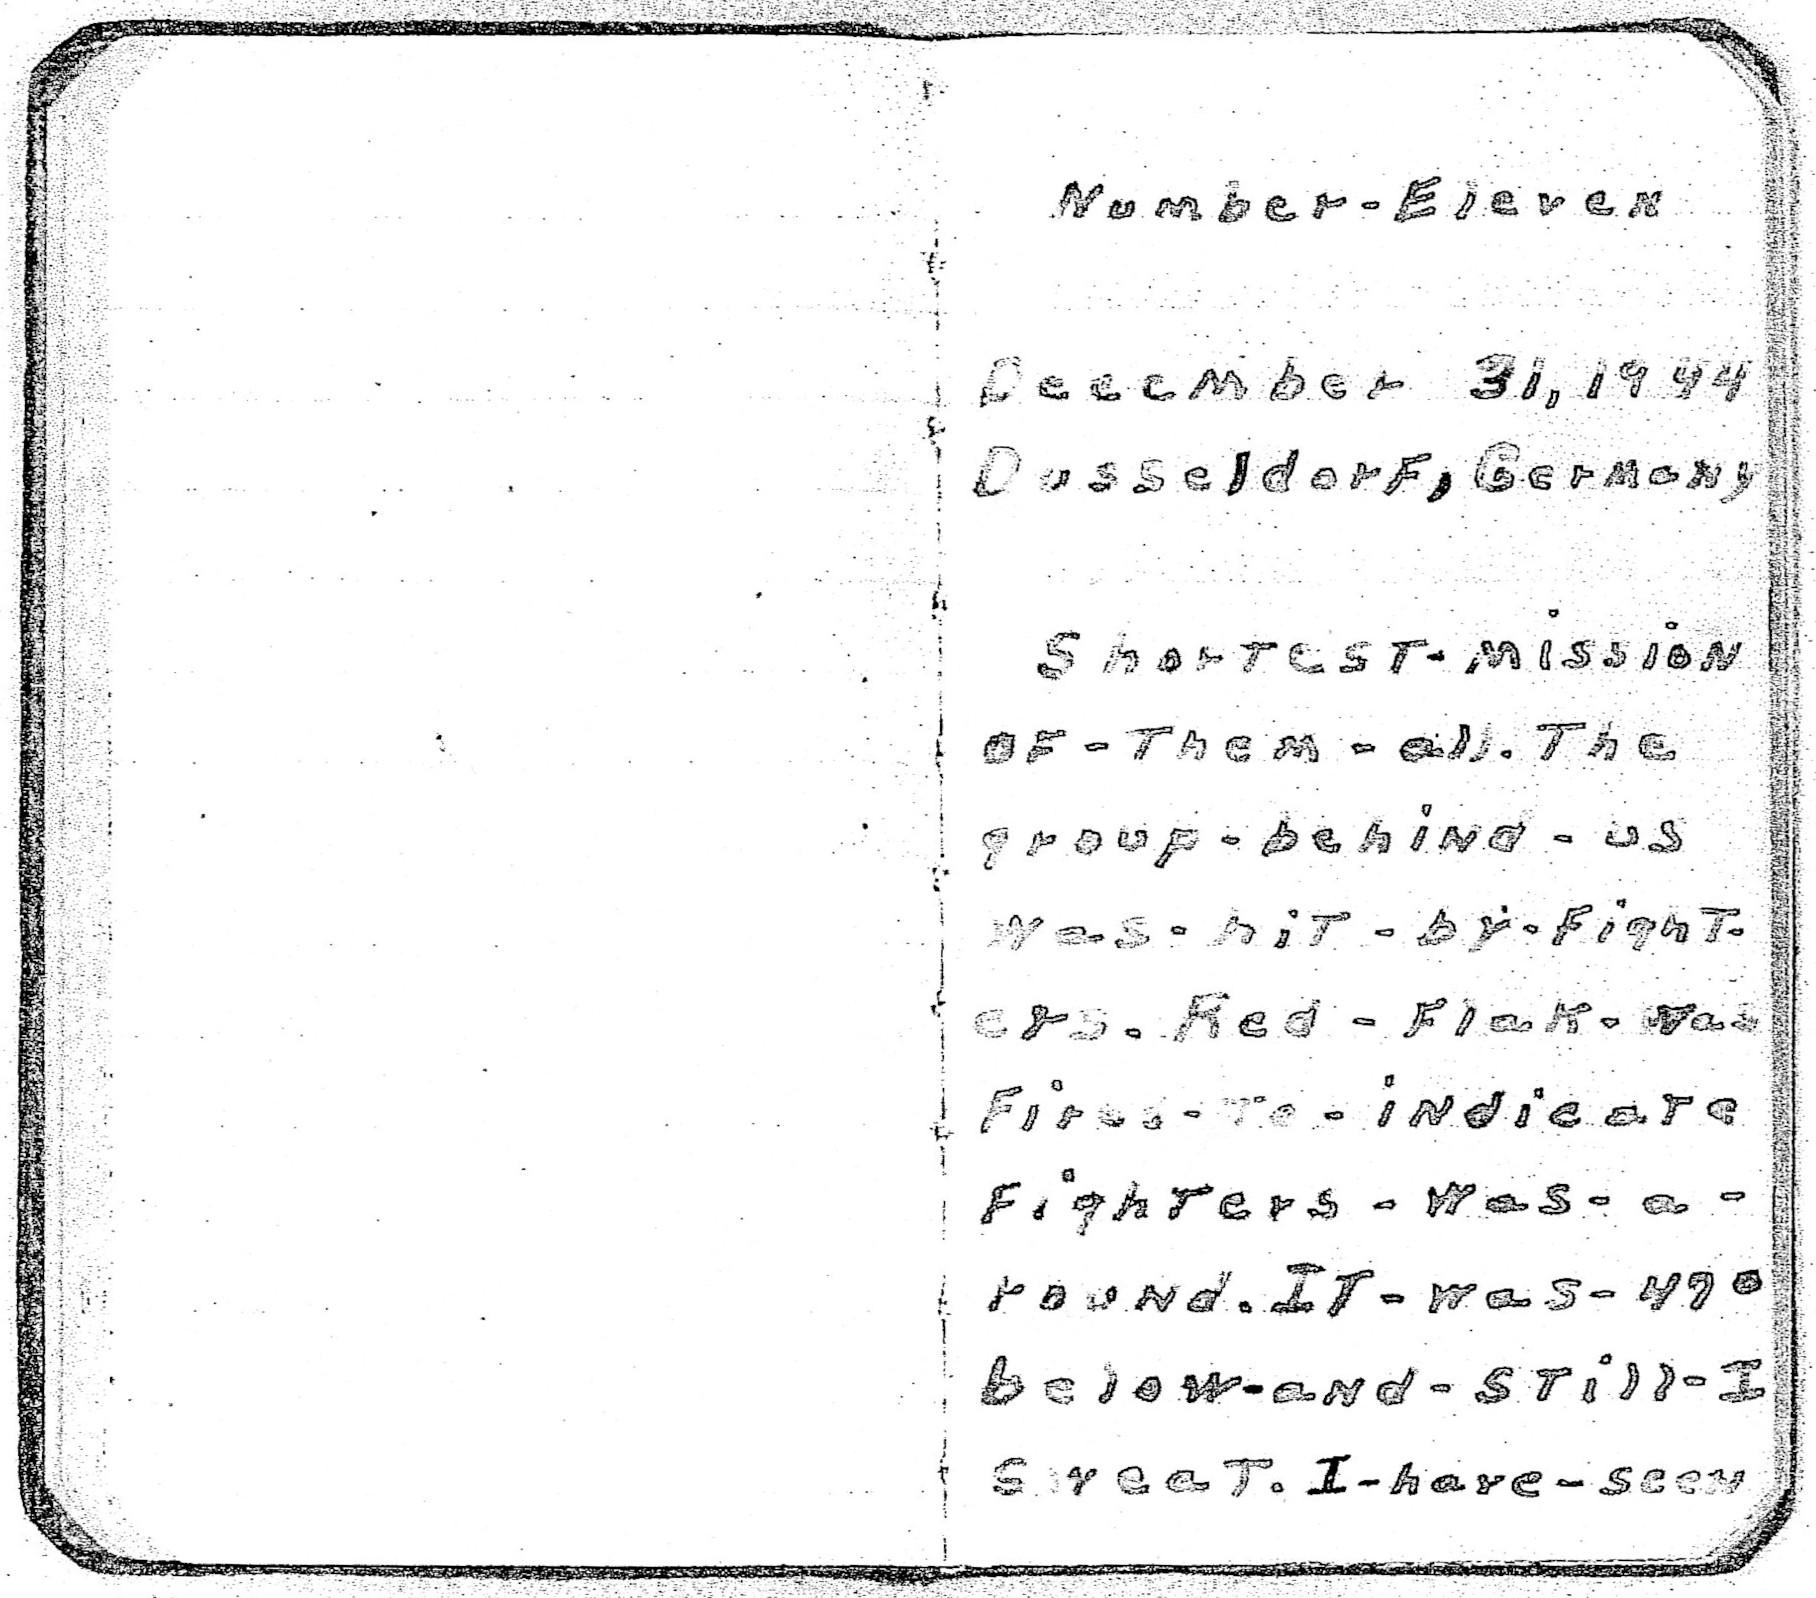 Number-Eleven
December 31, 1944
Dusseldorf, Germany
Shortest-mission
of-Them-all. The
group-behind-us
was-hit-by-Fight-
ers. Red-Flak-was
Fired-To-indicate
Fighters-was-a-
round. IT-was-490
below-and-still-I
sweat. I-have-seen